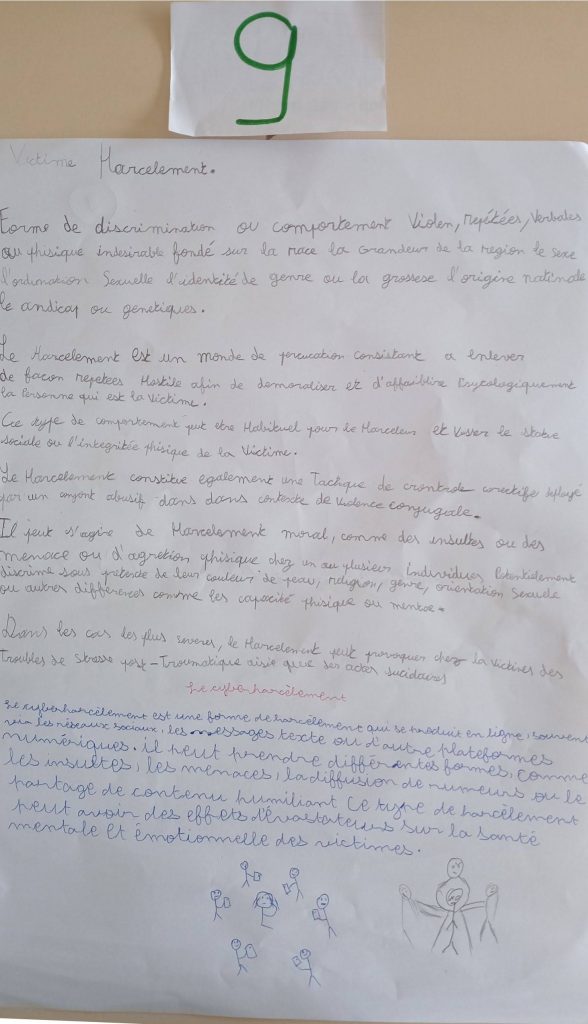 9
Victime Harcelement.
Forme de discrimination ou comportement Violen, repétées, Verbales
ou phisique indesirable fondé sur la race la Grandeur de la region le sexe
l'ordination Sexuelle d'identité de genre ou la grossese l'origine nationale
le andicap ou genetiques.
Le Harcelement est un monde de percucation consistant a enlever
de facon repetees Hostile afin de demoraliser et d'affaiblire Psycologiquement
la Personne qui est la Victime.
Ce type de comportement peut etre Habituel pour le Harceleur et visser le statue
sociale ou l'integritée phisique de la Victime.
Le Harcelement constitue egalement une Tachique de crontrole coectife deployé
par un conjoint abusif dans dans contexte de violence conjugale.
Il peut s'agire de Harcelement moral, comme des insultes ou des
menace ou d'agretion phisique chez un au plusieur Individues Potentidement
discrime sous pretexte de leur couleur de peau, religion, genre, orientation Sexuele
ou autres differences comme les capacité phisique ou mentoe.
Dans les cas les plus severes, le Harcelement peut provoquer chez la victimes des
Troubles de Stresse post-Traumatique aisie que des actes suicidaires
Le cyberharcèlement
Le cyberharcèlement est une forme de harcèlement qui se produit en ligne, souvent
via les réseaux sociaux, les messages texte ou d'autre plateformes
numériques. il peut prendre différentes formes, comme
les insultes, les menaces, la diffusion de rumeurs ou le
partage de contenu humiliant Ce type de harcèlement
peut avoir des effets dévastateurs sur la santé
mentale et émotionnelle des victimes.